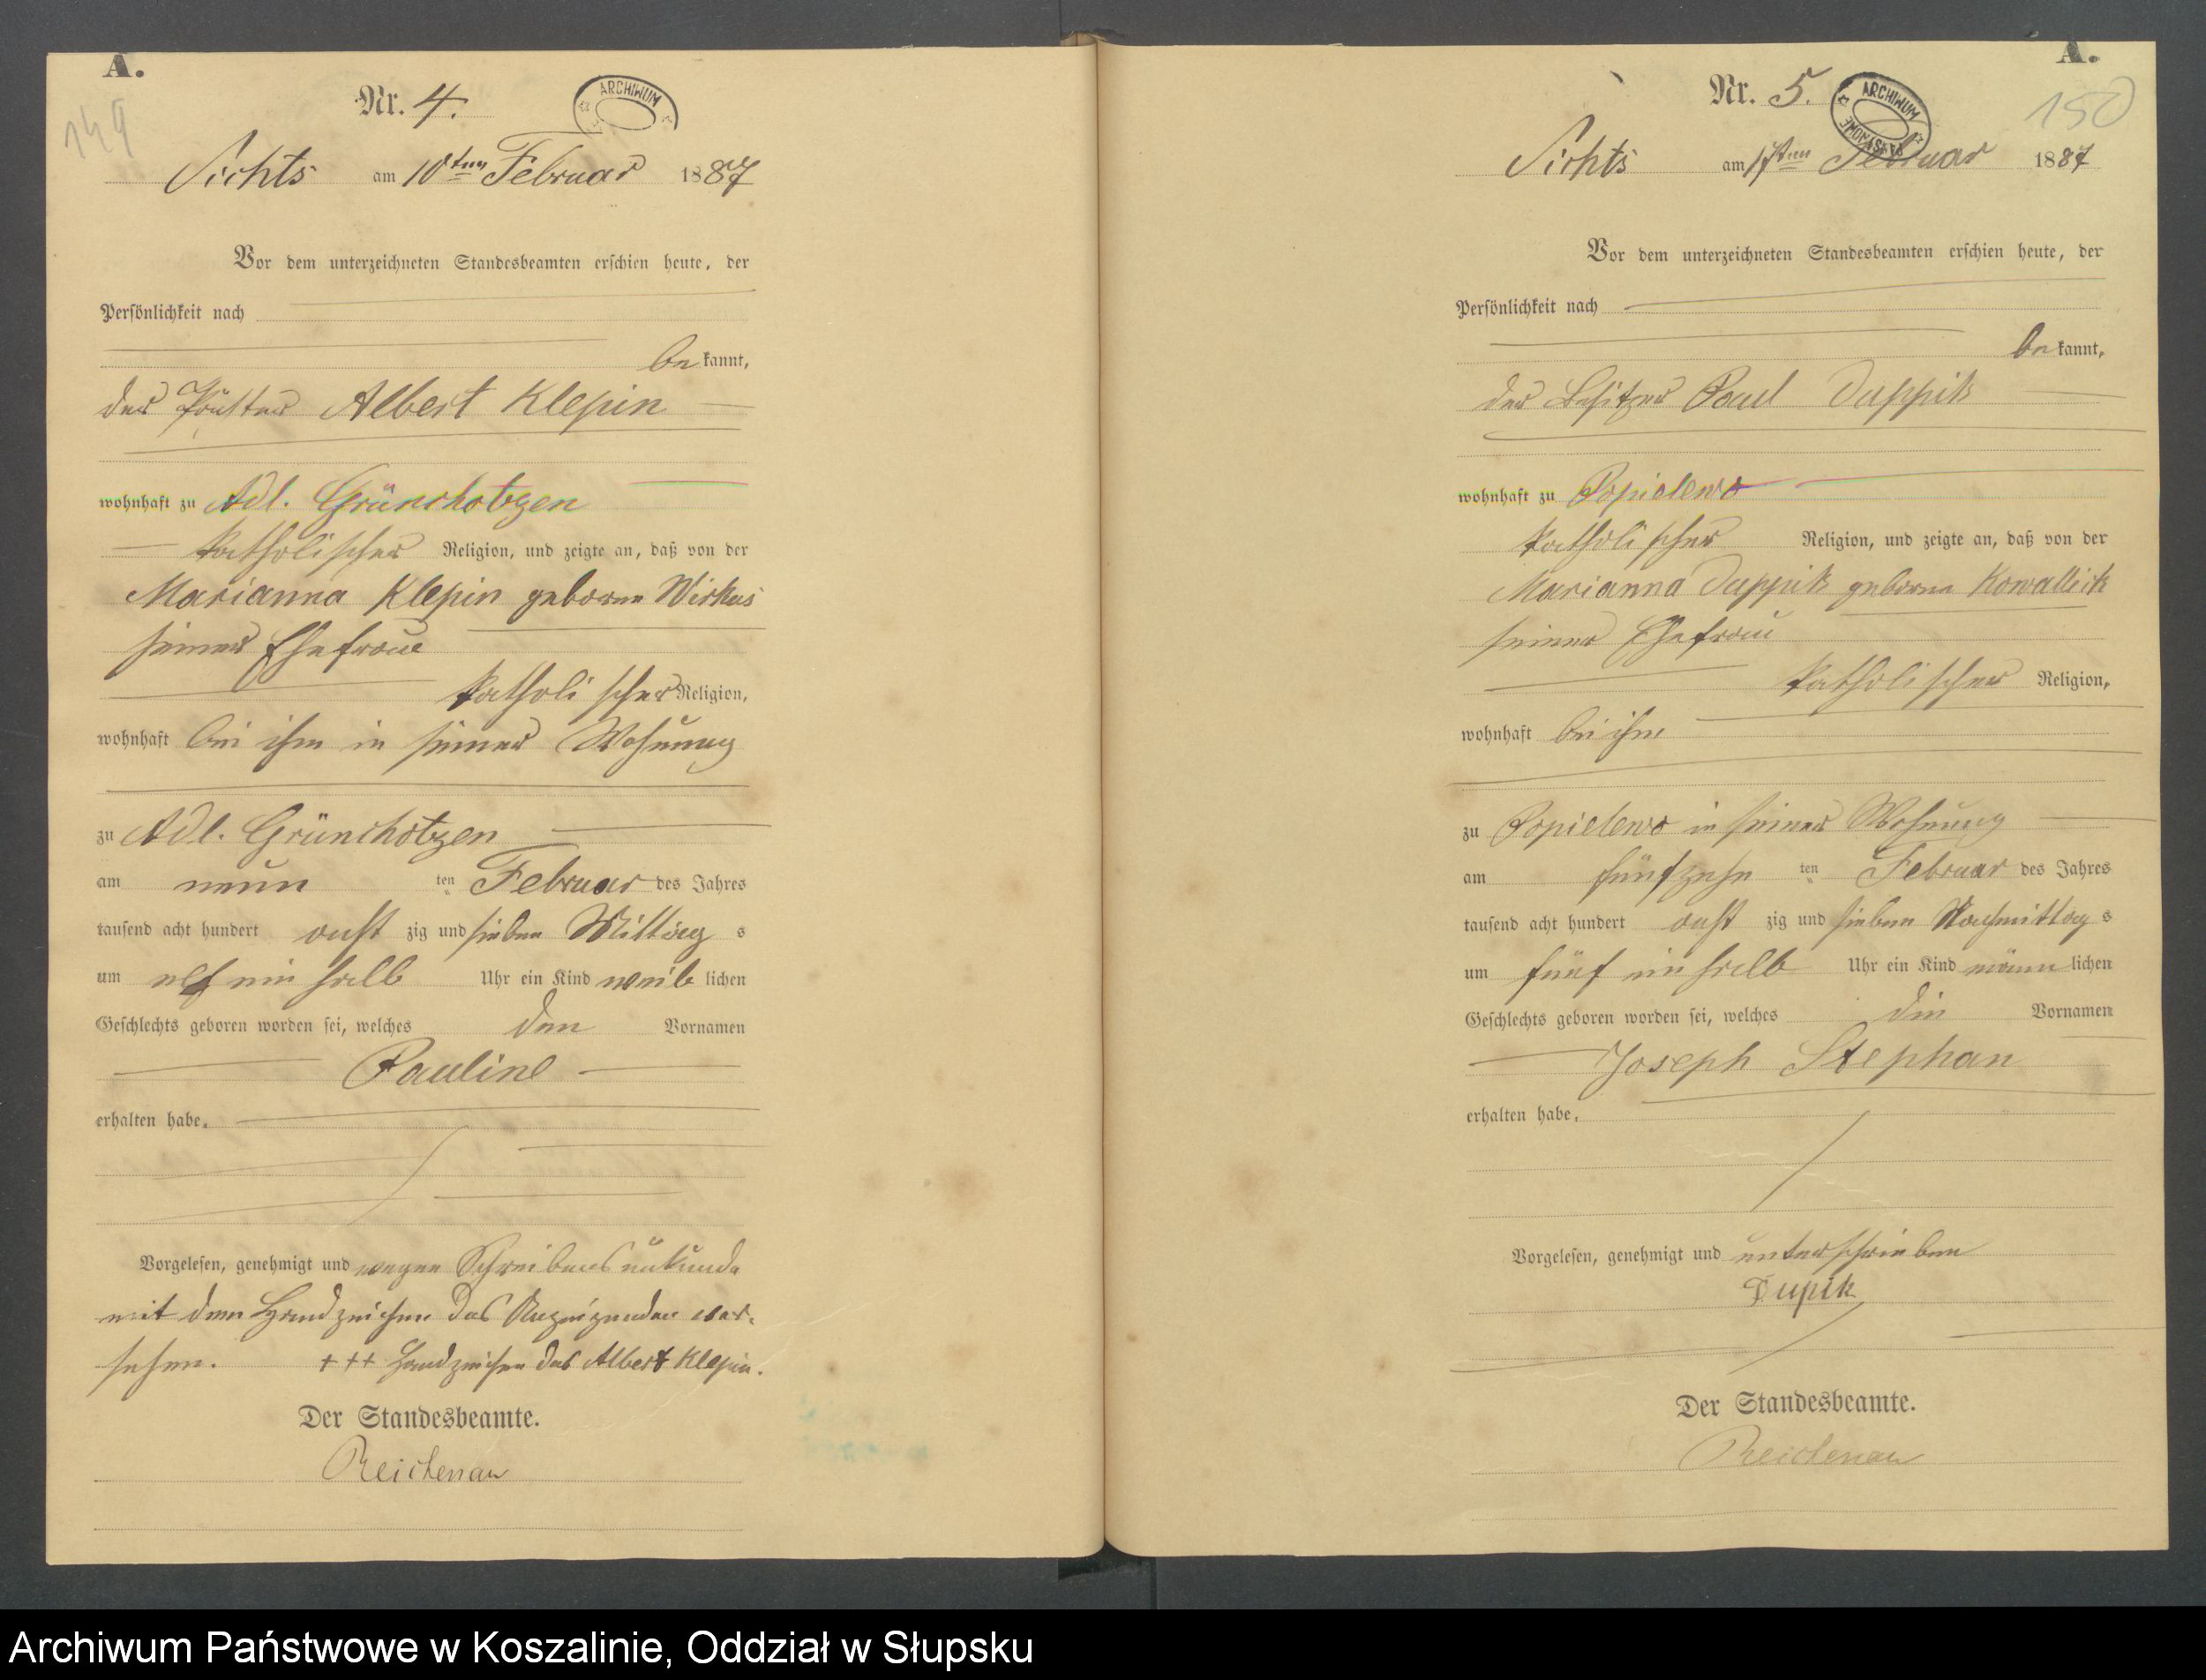 A.
149
Nr. 4.
ARCHIWUM
Sichts am 10ten Februar 1887
Vor dem unterzeichneten Standesbeamten erschien heute, der
Persönlichkeit nach
be kannt,
der Albert Klepin
wohnhaft zu Adl. Grünchotzen
katholischer Religion, und zeigte an, daß von der
Marianna Klepin geborne Wirkus
seiner Ehefrau
katholischer Religion,
wohnhaft bei ihm in seiner Wohnung
zu Adl. Grünchotzen
am neun ten Februar des Jahres
tausend acht hundert acht zig und sieben Mittag s
um elf ein halb Uhr ein Kind weib lichen
Geschlechts geboren worden sei, welches den Vornamen
Pauline
erhalten habe.
Vorgelesen, genehmigt und wegen Schreibensunkunde
mit dem Handzeichen des Anzeigenden ver-
sehen. +++ Handzeichen des Albert Klepin.
Der Standesbeamte.
Reichenau
A.
150
Nr. 5.
ARCHIWUM PAŃSTWOWE
Sichts am 17ten Februar 1887
Vor dem unterzeichneten Standesbeamten erschien heute, der
Persönlichkeit nach
be kannt,
der Besitzer Paul Duppik
wohnhaft zu Popielewo
katholischer Religion, und zeigte an, daß von der
Marianna Duppik geborne Kowallick
seiner Ehefrau
katholischer Religion,
wohnhaft bei ihm
zu Popielewo in seiner Wohnung
am fünfzehn ten Februar des Jahres
tausend acht hundert acht zig und sieben Nachmittag s
um fünf ein halb Uhr ein Kind männ lichen
Geschlechts geboren worden sei, welches die Vornamen
Joseph Stephan
erhalten habe.
Vorgelesen, genehmigt und unterschrieben
Dupik
Der Standesbeamte.
Reichenau
Archiwum Państwowe w Koszalinie, Oddział w Słupsku